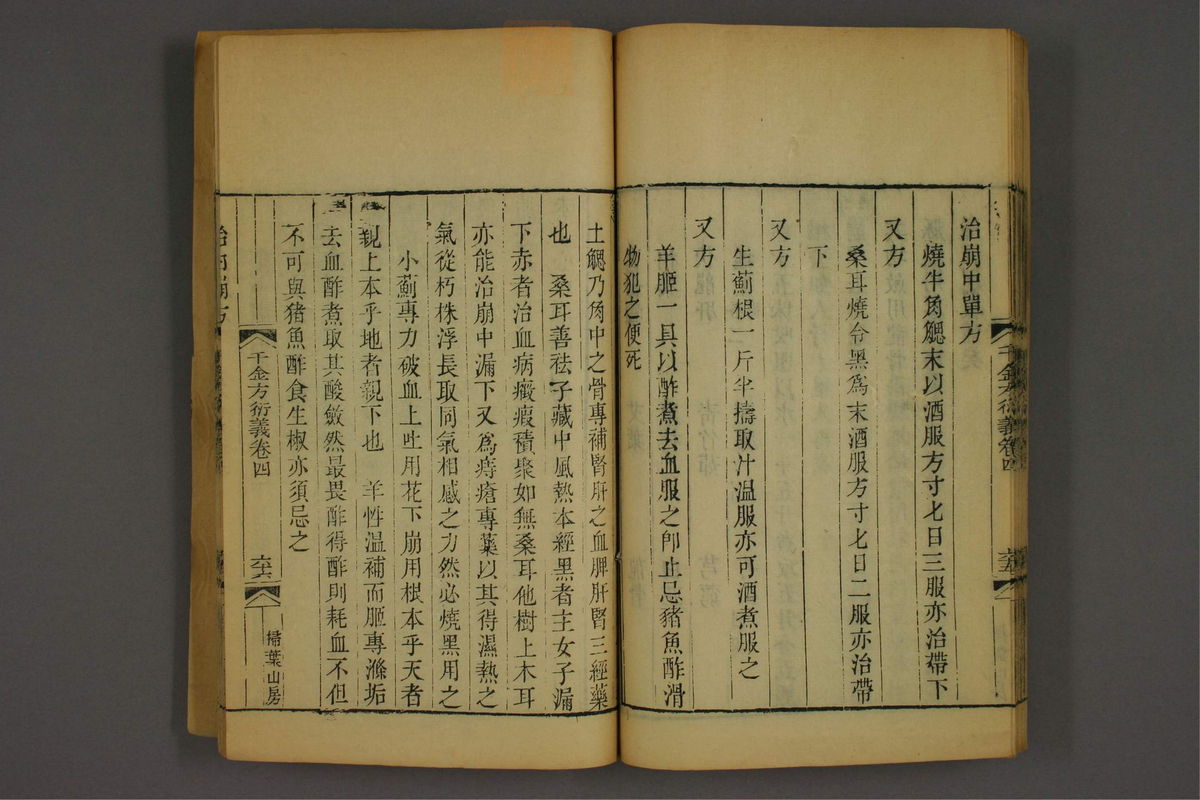 千金方衍義卷四
治崩中單方
燒牛角䚡末以酒服方寸匕日三服亦治帶下
又方
桑耳燒令黑爲末酒服方寸匕日二服亦治帶
下
又方
生薊根一斤半擣取汁温服亦可酒煮服之
又方
羊胵一具以酢煮去血服之卽止忌豬魚酢滑
物犯之便死
土䚡乃角中之骨專補腎肝之血脾肝腎三經藥
也　桑耳善祛子藏中風熱本經黑者主女子漏
下赤者治血病癥瘕積聚如無桑耳他樹上木耳
亦能治崩中漏下又爲痔瘡專藥以其得濕熱之
氣從朽株浮長取同氣相感之力然必燒黑用之
小薊專力破血上吐用花下崩用根本乎天者
親上本乎地者親下也　羊性温補而胵專滌垢
去血酢煮取其酸斂然最畏酢得酢則耗血不但
不可與猪魚酢食生椒亦須忌之
千金方衍義卷四
六六
掃葉山房